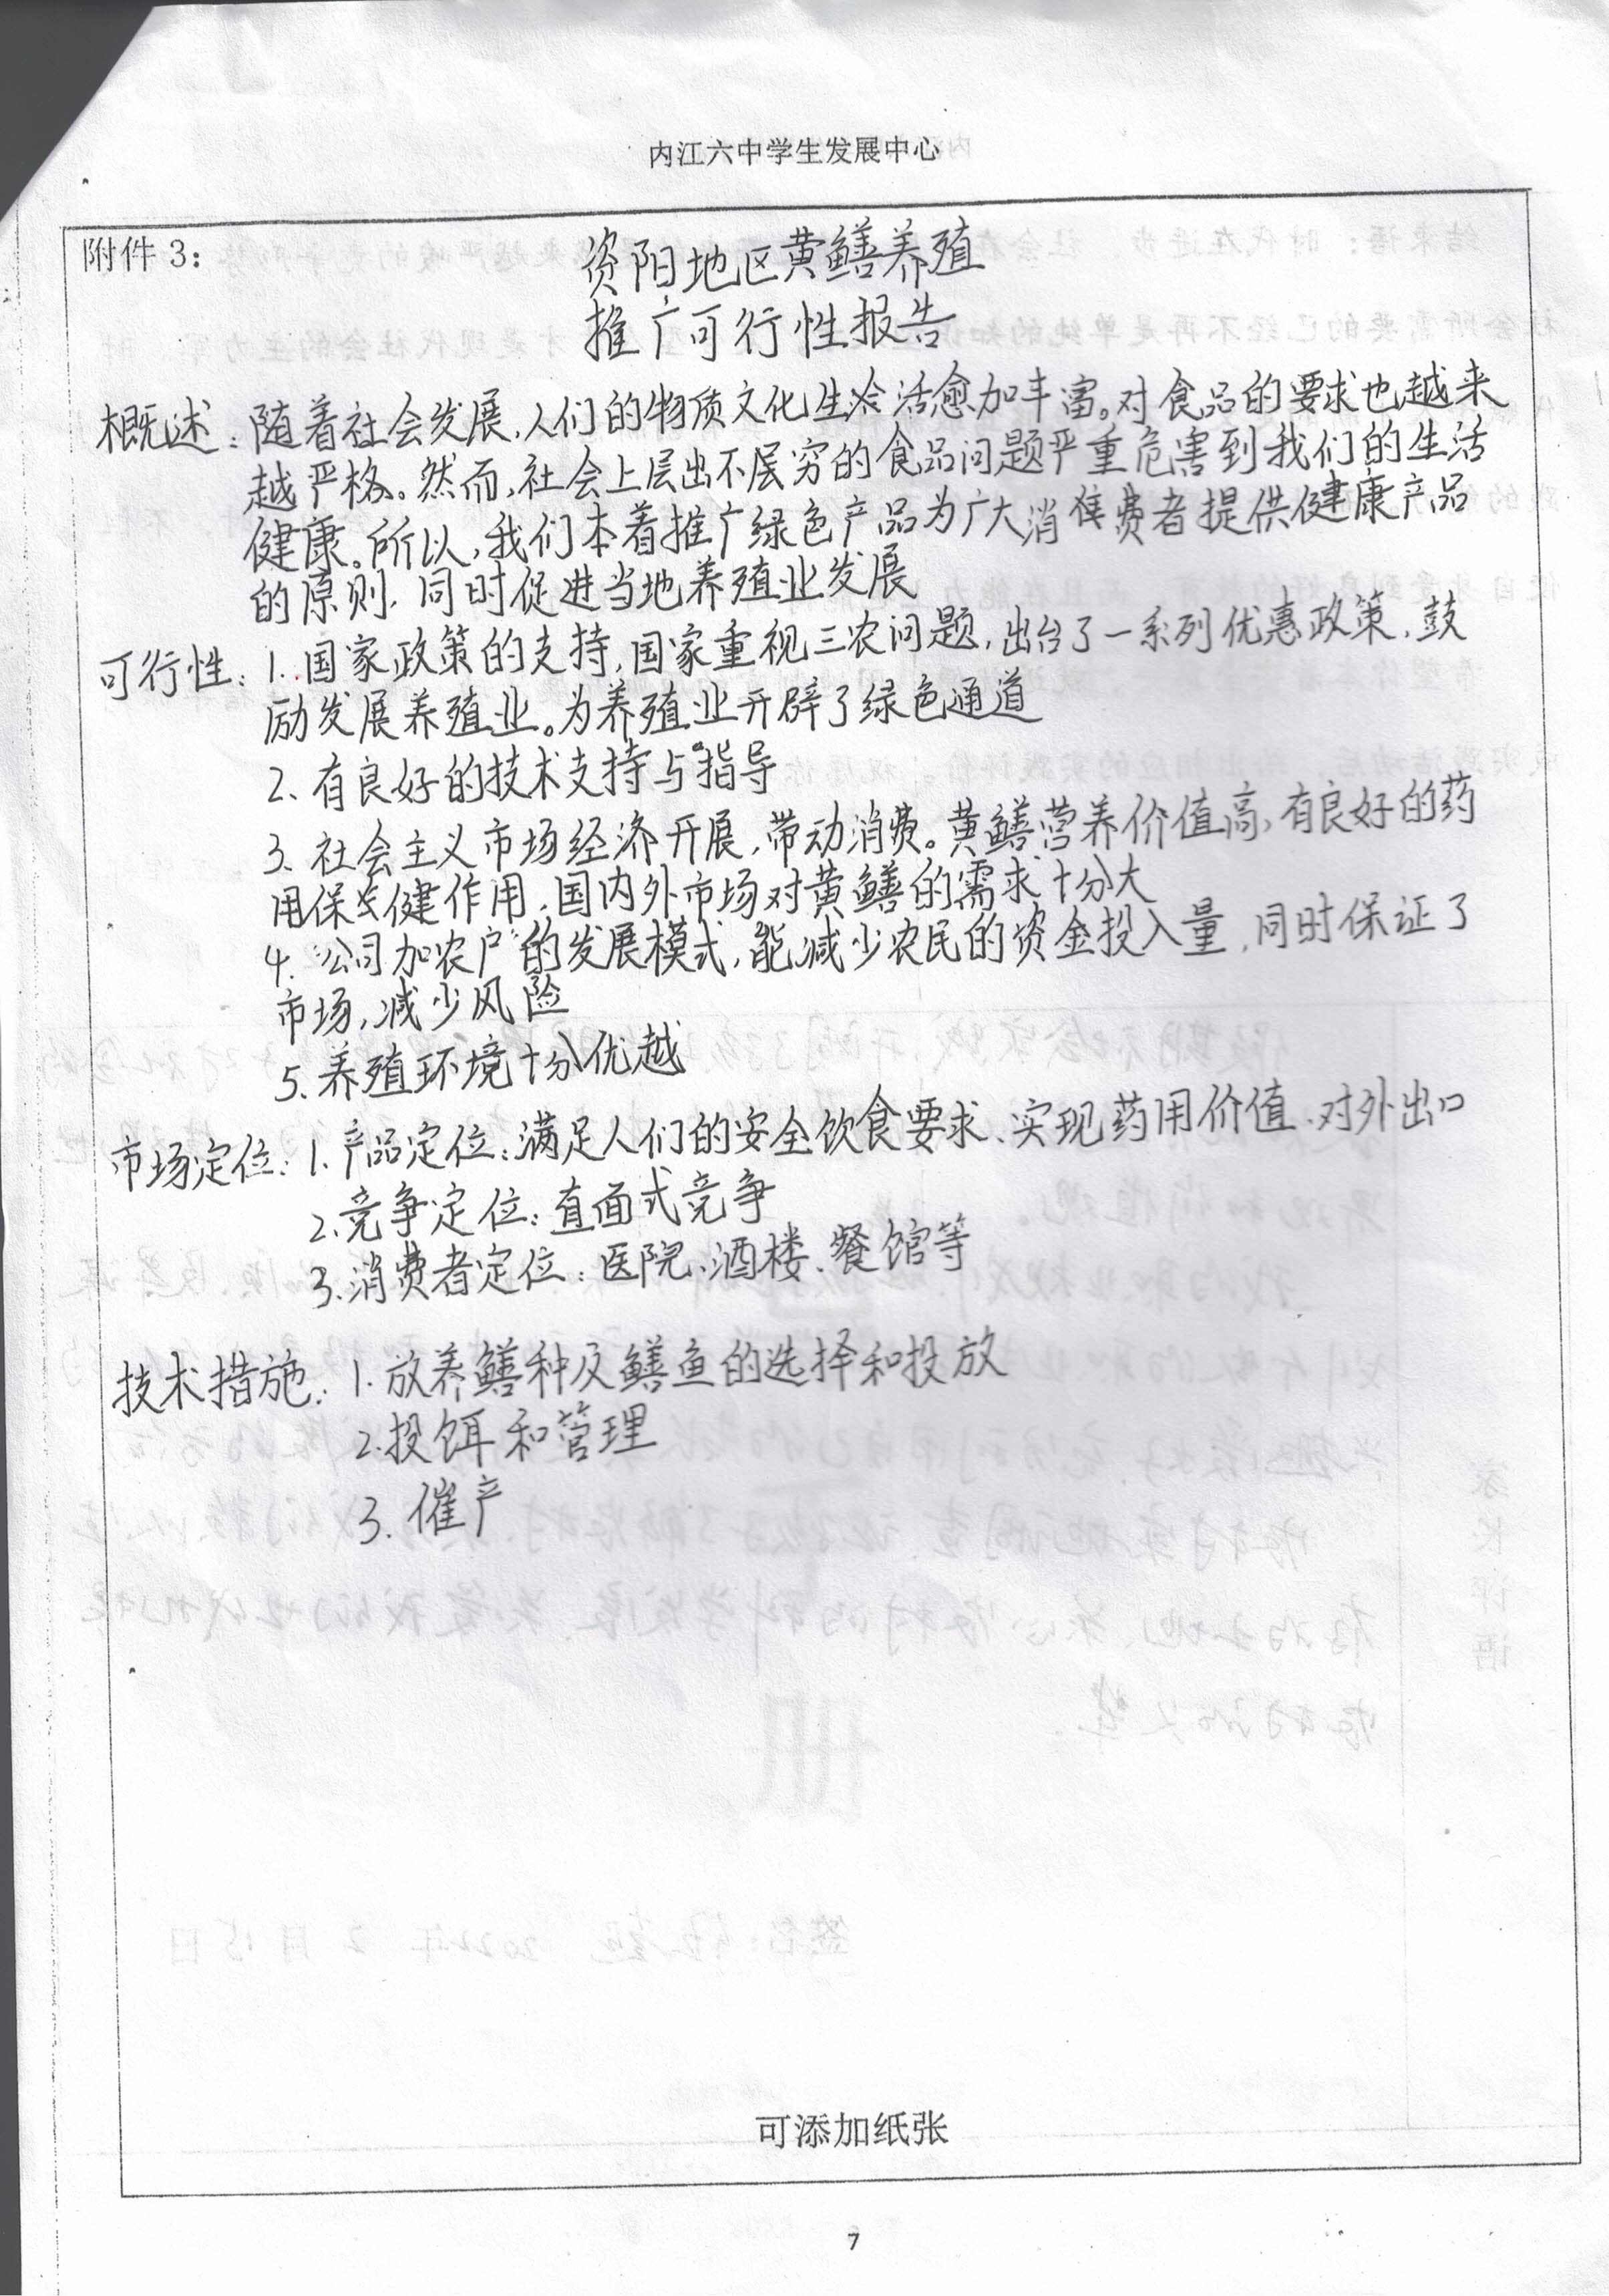 内江六中学生发展中心
附件 3：
资阳地区黄鳝养殖
推广可行性报告
概述：随着社会发展，人们的物质文化生活愈加丰富。对食品的要求也越来
越严格。然而，社会上层出不层穷的食品问题严重危害到我们的生活
健康。所以，我们本着推广绿色产品为广大消费者提供健康产品
的原则，同时促进当地养殖业发展
可行性：1.国家政策的支持，国家重视三农问题，出台了一系列优惠政策，鼓
励发展养殖业。为养殖业开辟了绿色通道
2、有良好的技术支持与指导
3、社会主义市场经济开展，带动消费。黄鳝营养价值高，有良好的药
用保健作用，国内外市场对黄鳝的需求十分大
4、“公司加农户”的发展模式，能减少农民的资金投入量，同时保证了
市场，减少风险
5、养殖环境十分优越
市场定位：1、产品定位：满足人们的安全饮食要求、实现药用价值、对外出口
2、竞争定位：直面式竞争
3、消费者定位：医院、酒楼、餐馆等
技术措施：1、放养鳝种及鳝鱼的选择和投放
2、投饵和管理
3、催产
可添加纸张
7